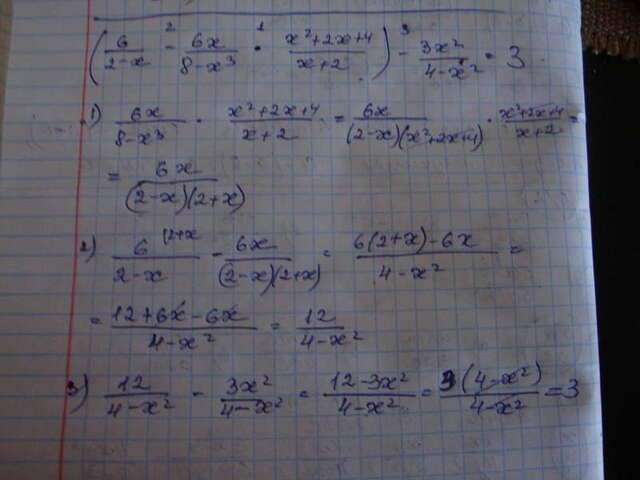 ( 6/(2-x) -² 6x/(8-x³) ·¹ (x²+2x+4)/(x+2) ) -³ 3x²/(4-x²) = 3
1) 6x/(8-x³) · (x²+2x+4)/(x+2) = 6x/((2-x)(x²+2x+4)) · (x²+2x+4)/(x+2) =
= 6x/((2-x)(2+x))
2) 6 (2+x/(2-x) - 6x/((2-x)(2+x)) = (6(2+x)-6x)/(4-x²) =
= (12+6x-6x)/(4-x²) = 12/(4-x²)
3) 12/(4-x²) - 3x²/(4-x²) = (12-3x²)/(4-x²) = 3(4-x²)/(4-x²) = 3